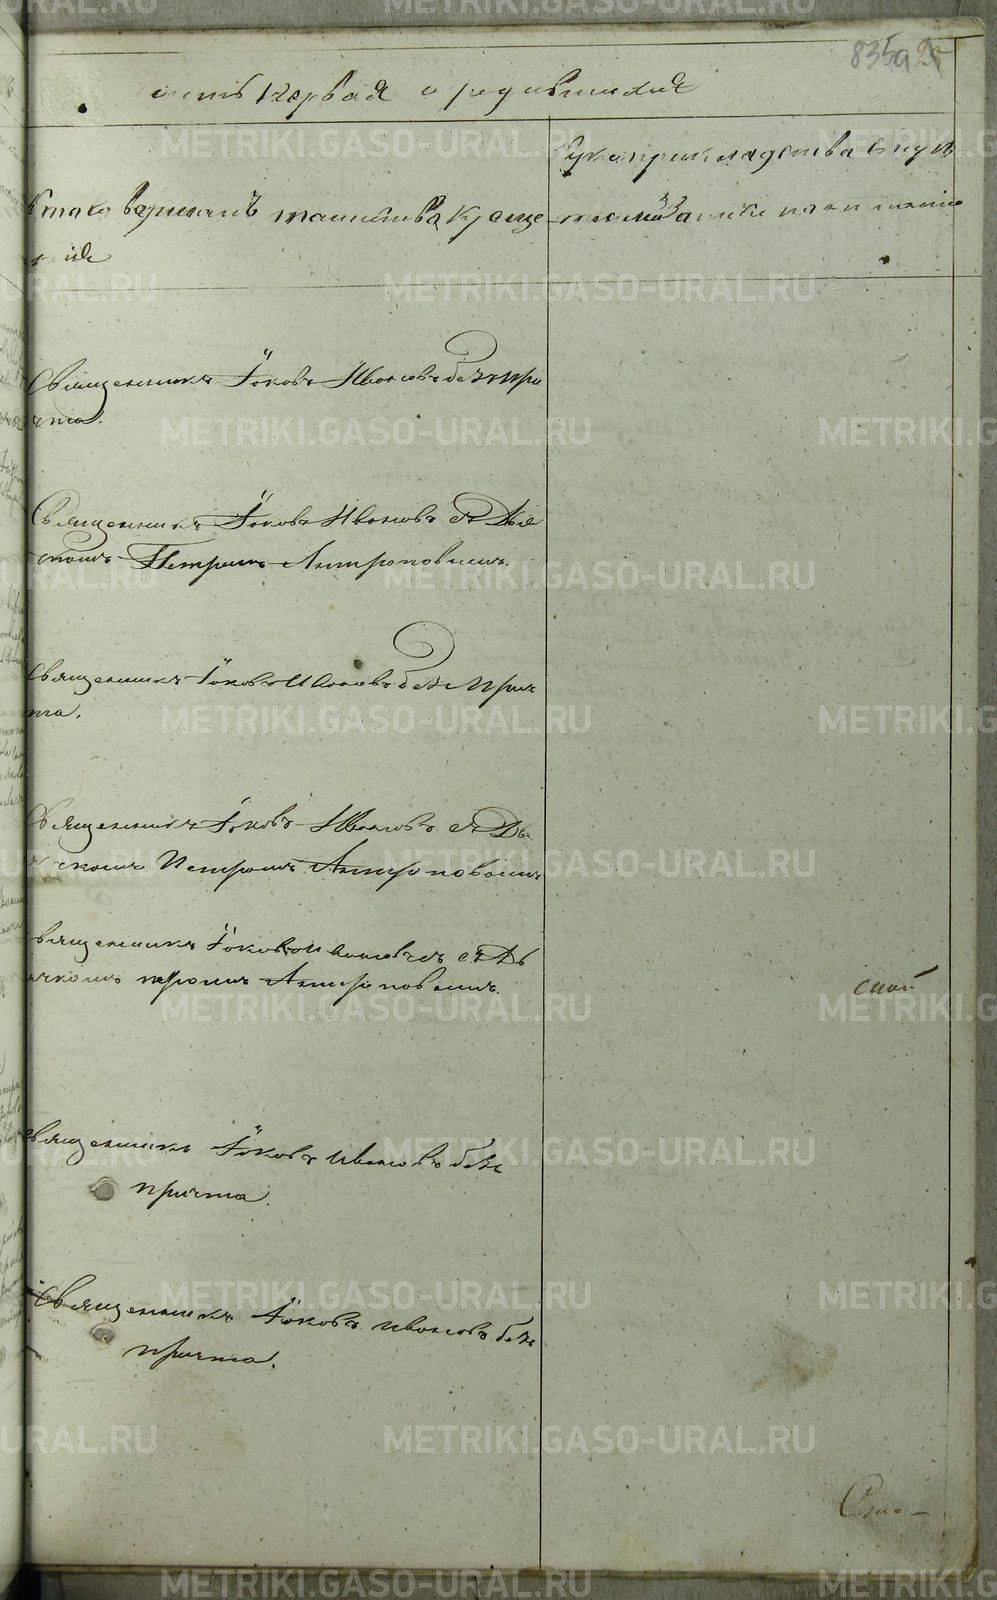 835а 25
часть первая о родившихся
Рукоприкладства свиде
Кто совершалъ таинство Креще
телей записки по желанію
нія
Священникъ Іаковъ Ивановъ безъ при
чта.
Священникъ Іаковъ Ивановъ съ Дья
чкомъ Петромъ Антроповымъ.
Священникъ Іаковъ Ивановъ безъ прич
та.
Священникъ Іаковъ Ивановъ съ Дь
ячкомъ Петромъ Антроповымъ
Священникъ Іаковъ Ивановъ съ Дь
ячкомъ Петромъ Антроповымъ.
ской
Священникъ Іаковъ Ивановъ безъ
причта.
Священникъ Іаковъ Ивановъ безъ
причта.
METRIKI.GASO-URAL.RU